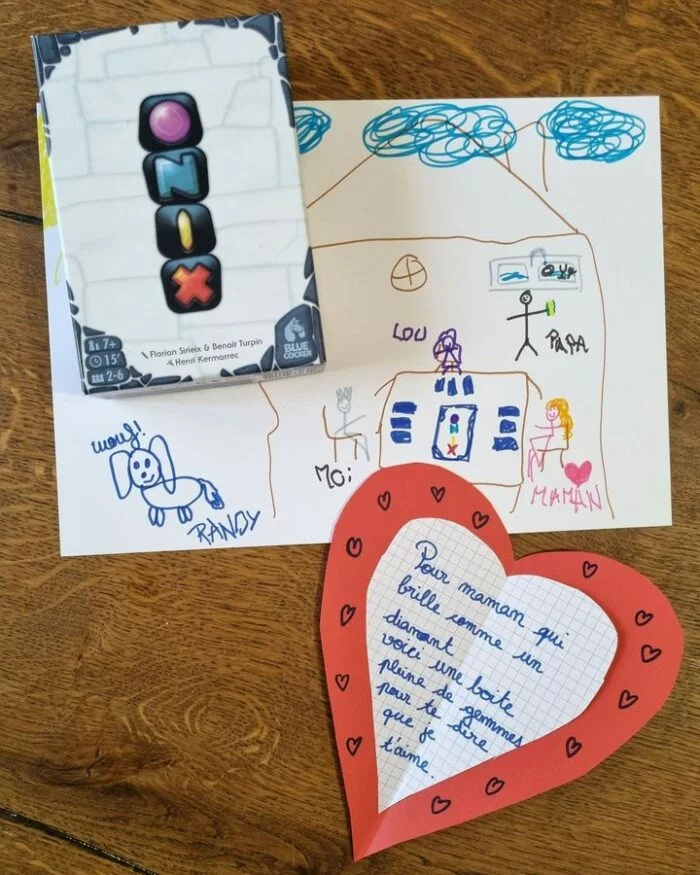 ONiX
7+
15'
2-6
Florian Sirieix & Benoit Turpin
Henri Kermarrec
BLUE COCKER
LOU
PAPA
MOi
MAMAN
ONiX
wouf!
RANDY
Pour maman qui
brille comme un
diamant
voici une boite
pleine de gemmes
pour te dire
que je
t'aime.